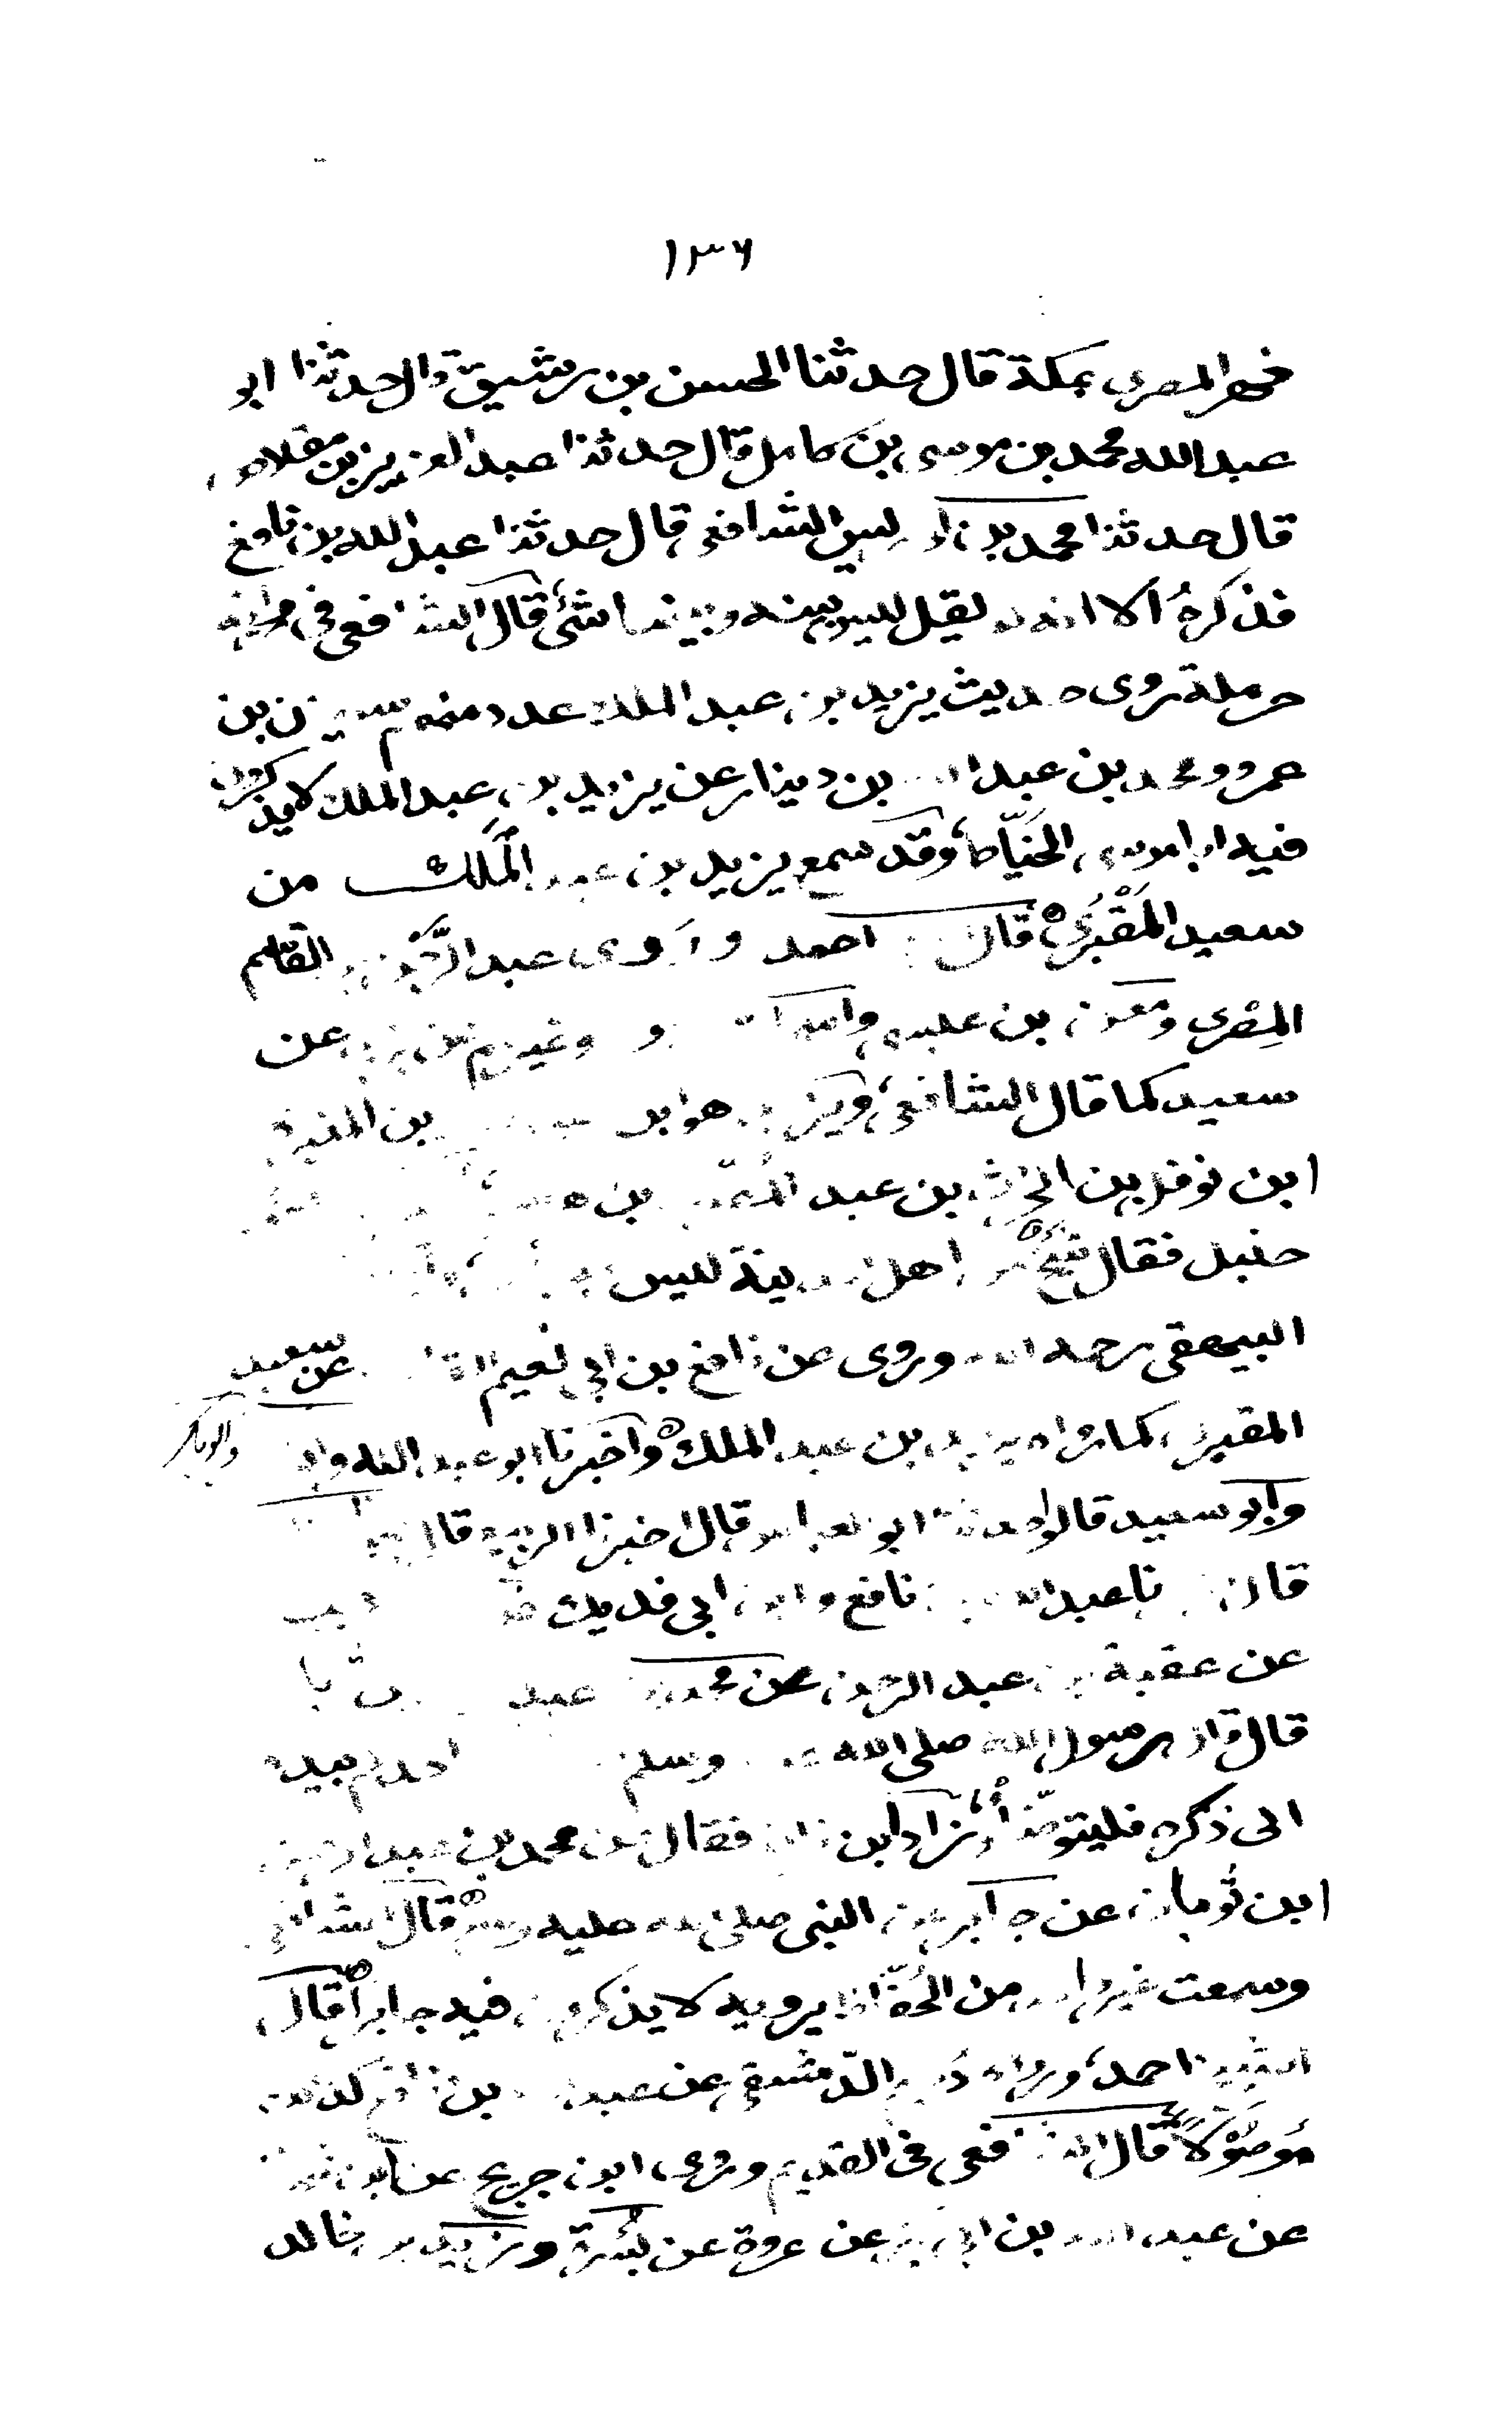 ١٣٦
فهر المصرى بمكة قال حدثنا الحسن بن رشيق قال حدثنا ابو
عبد الله محمد بن موسى بن كامل قال حدثنا عبد العزيز بن مقلاص
قال حدثنا محمد بن ادريس الشافعى قال حدثنا عبد الله بن نافع
فذكره الا انه لم يقل ليس بينه وبينها شئ قال الشافعى فى رواية
حرملة روى حديث يزيد بن عبد الملك عدد منهم سليمن بن
عمرو ومحمد بن عبد الله بن دينار عن يزيد بن عبد الملك لا يذكرون
فيه ابا موسى الحناط وقد سمع يزيد بن عبد الملك من
سعيد المقبرى قال احمد وروى عبد الرحمن بن القاسم
المصرى ومعن بن عيسى واسحاق وغيرهم عن يزيد عن
سعيد كما قال الشافعى ويزيد هو ابن عبد الملك بن المغيرة
ابن نوفل بن الحرث بن عبد المطلب بن
حنبل فقال شيخ من اهل المدينة ليس به
البيهقى رحمه الله وروى عن نافع بن ابى نعيم القارئ عن سعيد
المقبرى كما رواه يزيد بن عبد الملك واخبرنا ابو عبد الله وابو
وابو بكر
وابو سعيد قالوا حدثنا ابو العباس قال اخبرنا الربيع قال
قال نا عبد الله بن نافع وابن ابى فديك عن ابن ابى ذيب
عن عقبة بن عبد الرحمن عن محمد بن عبد الرحمن بن ثوبان
قال قال رسول الله صلى الله عليه وسلم اذا افضى احدكم بيده
الى ذكره فليتوضأ وزاد ابن نافع فقال عن محمد بن عبد الرحمن
ابن ثوبان عن جابر عن النبى صلى الله عليه وسلم قال الشافعى
وسمعت غير واحد من الحفاظ يرويه لا يذكرون فيه جابرا قال
الشيخ احمد ورواه دحيم الدمشقى عن عبد الله بن نافع كذلك
موصولا قال الشافعى فى القديم وروى ابن جريج عن ابن شهاب
عن عبد الله بن ابى بكر عن عروة عن بسرة وزيد بن خالد